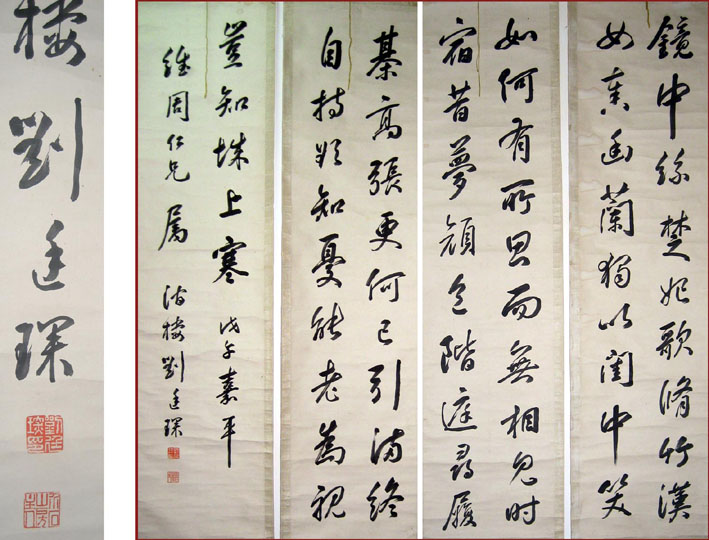 鏡中絲楚妃歌脩竹漢
女奏幽蘭獨以閨中笑
如何有所思而無相見時
宿昔夢顔色階庭尋履
綦高張更何已引滿終
自持欲知憂能老為視
豈知城上寒 戊午嘉平
維周仁兄屬 潛樓劉廷琛
樓劉廷琛
劉廷琛印